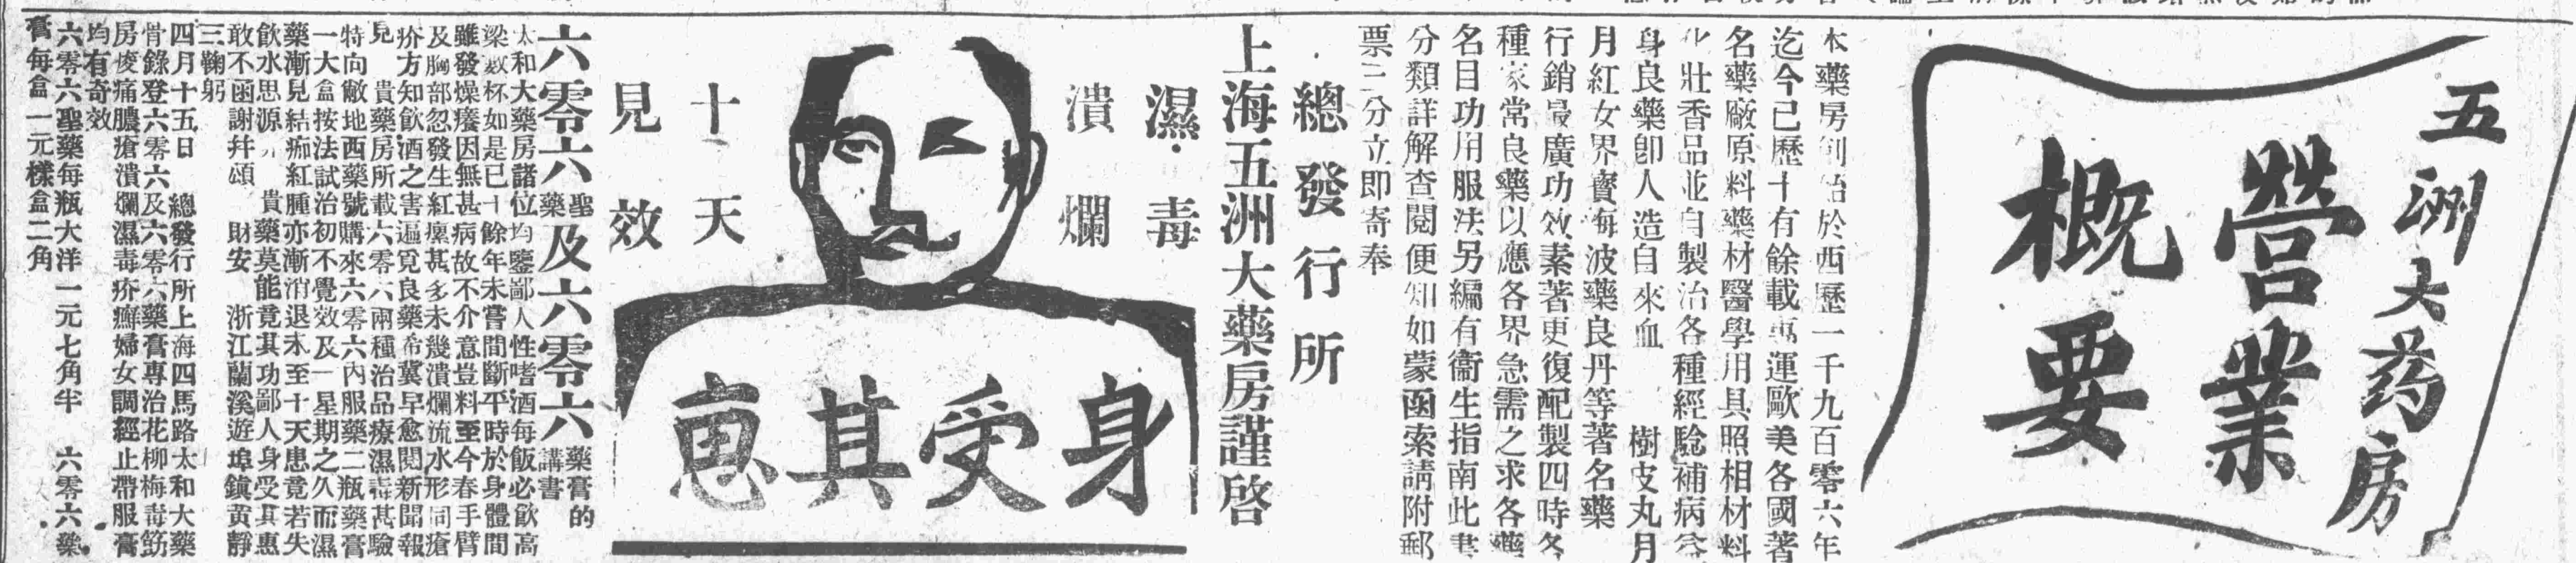 五洲大药房
營業
概要
本藥房創始於西歷一千九百零六年
迄今已歷十有餘載專運歐美各國著
名藥廠原料藥材醫學用具照相材料
化壯香品並自製治各種經驗補病益
身良藥卽人造自來血 樹皮丸月
月紅女界寶海波藥良丹等著名藥
行銷最廣功效素著更復配製四時各
種家常良藥以應各界急需之求各藥
名目功用服法另編有衞生指南此書
分類詳解查閱便知如蒙函索請附郵
票三分立即寄奉
總發行所
上海五洲大藥房謹啓
濕毒
潰爛
十天
見效
身受其惠
六零六聖藥及六零六藥膏的講書
太和大藥房諸位均鑒鄙人性嗜酒每飯必飲高
梁數杯如是已十餘年未嘗間斷平時於身體間
雖發燥癢因無甚病故不介意豈料至今春手臂
及胸部忽發生紅瘰甚多未幾潰爛流水形同瘡
疥方知飲酒之害遍覓良藥希冀早愈閱新聞報
見 貴藥房所載六零六兩種治品療濕毒甚驗
特向敝地西藥號購來六零六內服藥二瓶藥膏
一大盒按法試治初不覺效及一星期之久而濕
藥漸見結痂紅腫亦漸消退未至十天患竟若失
飲水思源 貴藥莫能竟其功鄙人身受其惠
敢不函謝幷頌 財安 浙江蘭溪遊埠鎮黄靜
三鞠躬
四月十五日 總發行所上海四馬路太和大藥
骨錄登六零六及六零六藥膏專治花柳梅毒筋
房痠痛膿瘡潰爛濕毒疥癬婦女調經止帶服膏
均有奇效
六零六聖藥每瓶大洋一元七角半 六零六藥
膏每盒一元樣盒二角